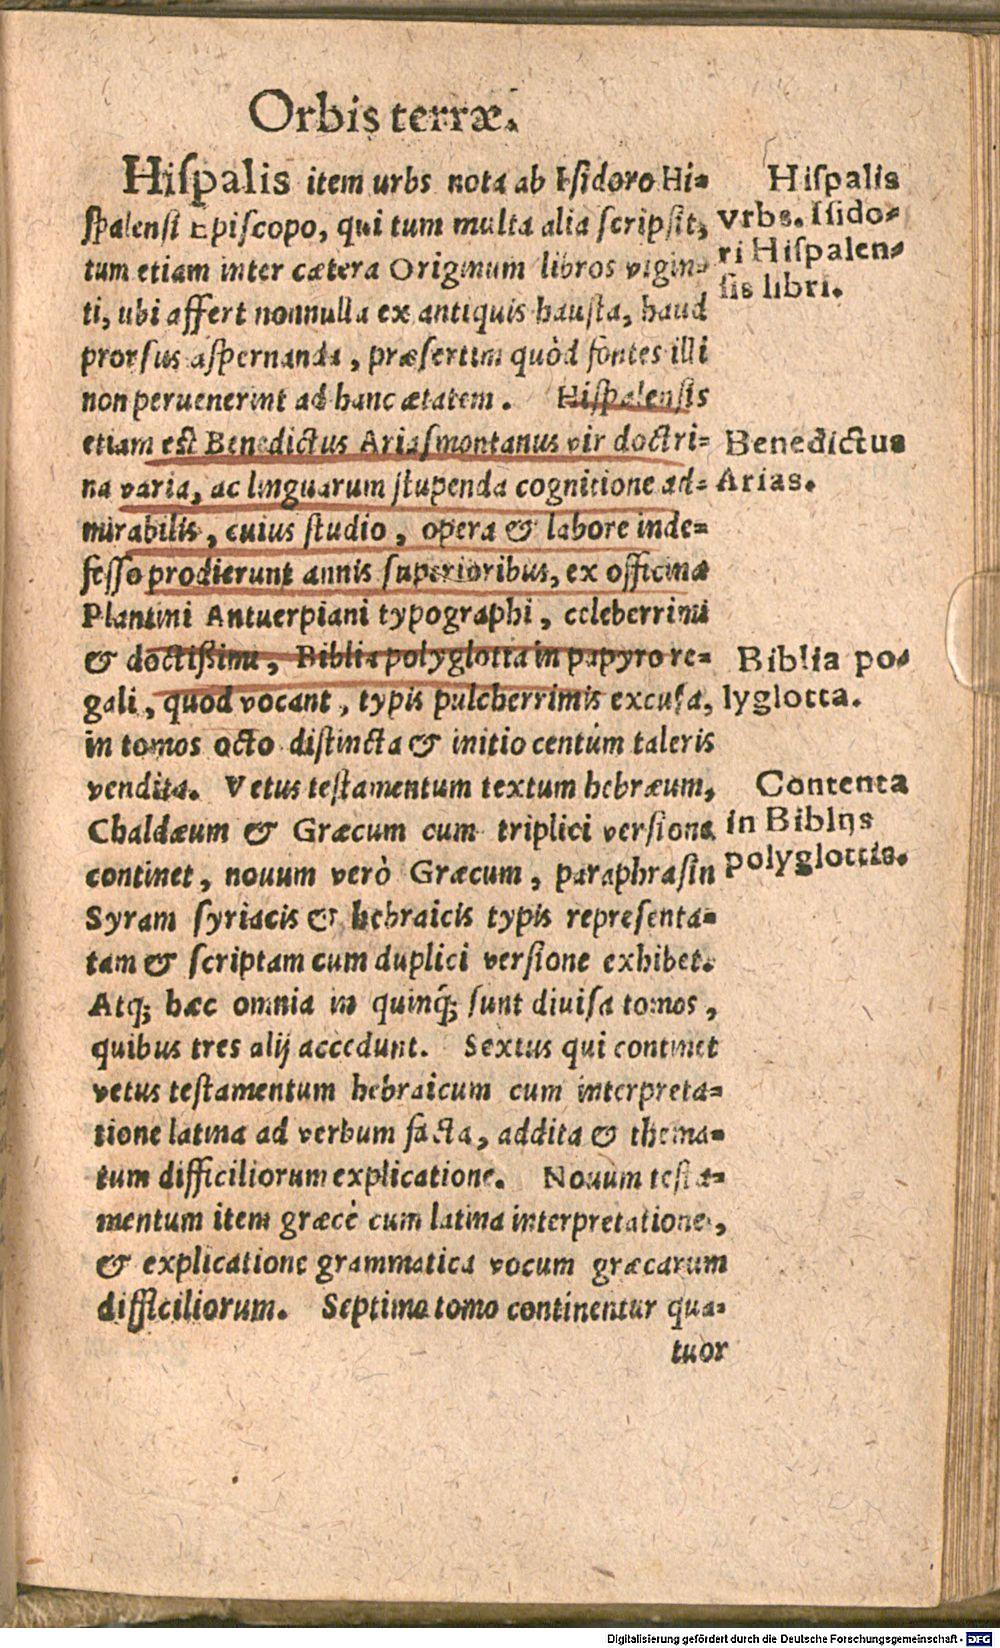 Orbis terræ.
Hiſpalis item urbs nota ab Iſidoro Hi=
ſpalenſi Epiſcopo, qui tum multa alia ſcripſit,
tum etiam inter cætera Originum libros vigin=
ti, ubi affert nonnulla ex antiquis hauſta, haud
prorſus aſpernanda, præſertim quòd fontes illi
non peruenerint ad hanc ætatem. Hiſpalenſis
etiam eſt Benedictus Ariasmontanus vir doctri=
na varia, ac linguarum ſtupenda cognitione ad=
mirabilis, cuius ſtudio, opera & labore inde=
feſſo prodierunt annis ſuperioribus, ex officina
Plantini Antuerpiani typographi, celeberrimi
& doctißimi, Biblia polyglotta in papyro re=
gali, quod vocant, typis pulcherrimis excuſa,
in tomos octo diſtincta & initio centúm taleris
vendita. Vetus teſtamentum textum hebræum,
Chaldæum & Græcum cum triplici verſione
continet, nouum verò Græcum, paraphraſin
Syram ſyriacis & hebraicis typis repreſenta=
tam & ſcriptam cum duplici verſione exhibet.
Atq; hæc omnia in quinq́; ſunt diuiſa tomos,
quibus tres alij accedunt. Sextus qui continet
vetus teſtamentum hebraicum cum interpreta=
tione latina ad verbum facta, addita & thema=
tum difficiliorum explicatione. Nouum teſta=
mentum item græcè cum latina interpretatione,
& explicatione grammatica vocum græcarum
difficiliorum. Septimo tomo continentur qua=
tuor
Hiſpalis
vrbs. Iſido=
ri Hiſpalen=
ſis libri.
Benedictus
Arias.
Biblia po=
lyglotta.
Contenta
in Biblijs
polyglottis.
Digitalisierung gefördert durch die Deutsche Forschungsgemeinschaft - DFG